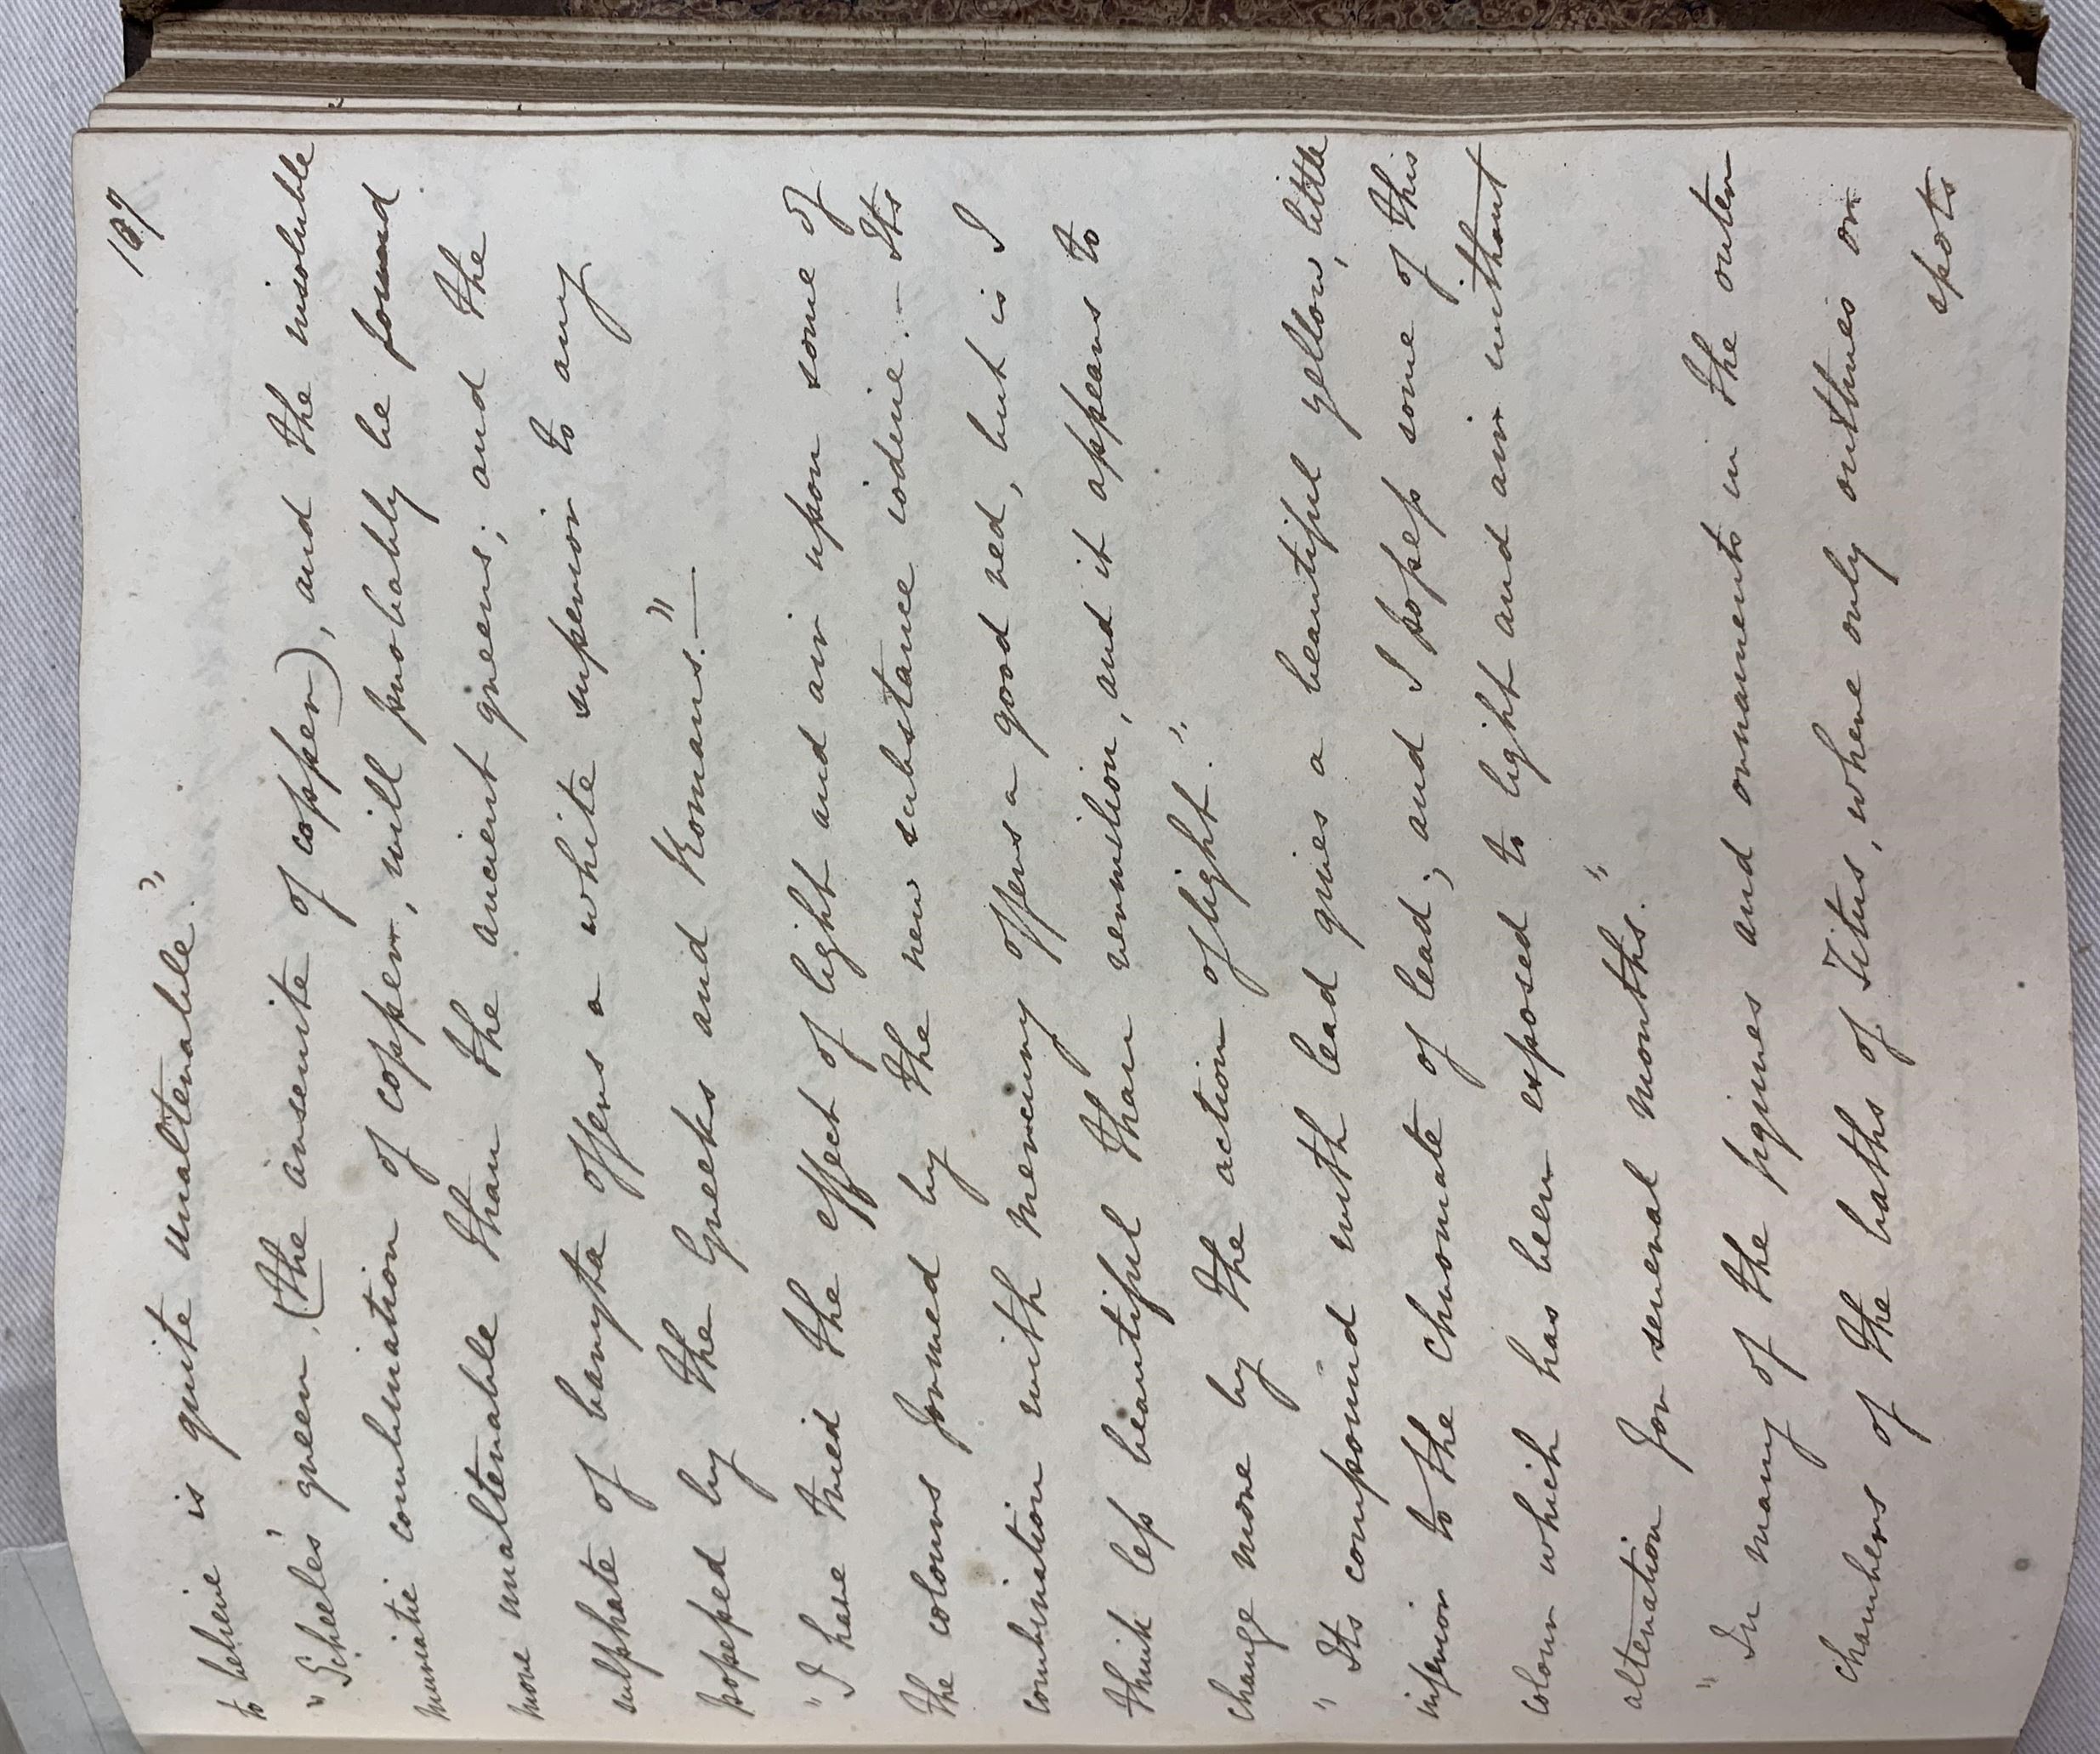 137
to believe is quite unalterable."
"Scheele's green (the arsenite of copper), and the insoluble
muriatic combination of copper, will probably be found
more unalterable than the ancient greens; and the
sulphate of baryta offers a white superior to any
possessed by the Greeks and Romans."
"I have tried the effect of light and air upon some of
the colours formed by the new substance iodine. - Its
combination with mercury offers a good red, but is I
think less beautiful than vermilion, and it appears to
change more by the action of light."
"Its compound with lead gives a beautiful yellow, little
inferior to the chromate of lead; and I possess some of this
colour which has been exposed to light and air without
alteration for several months."
"In many of the figures and ornaments in the outer
chambers of the baths of Titus, where only outlines or
spots